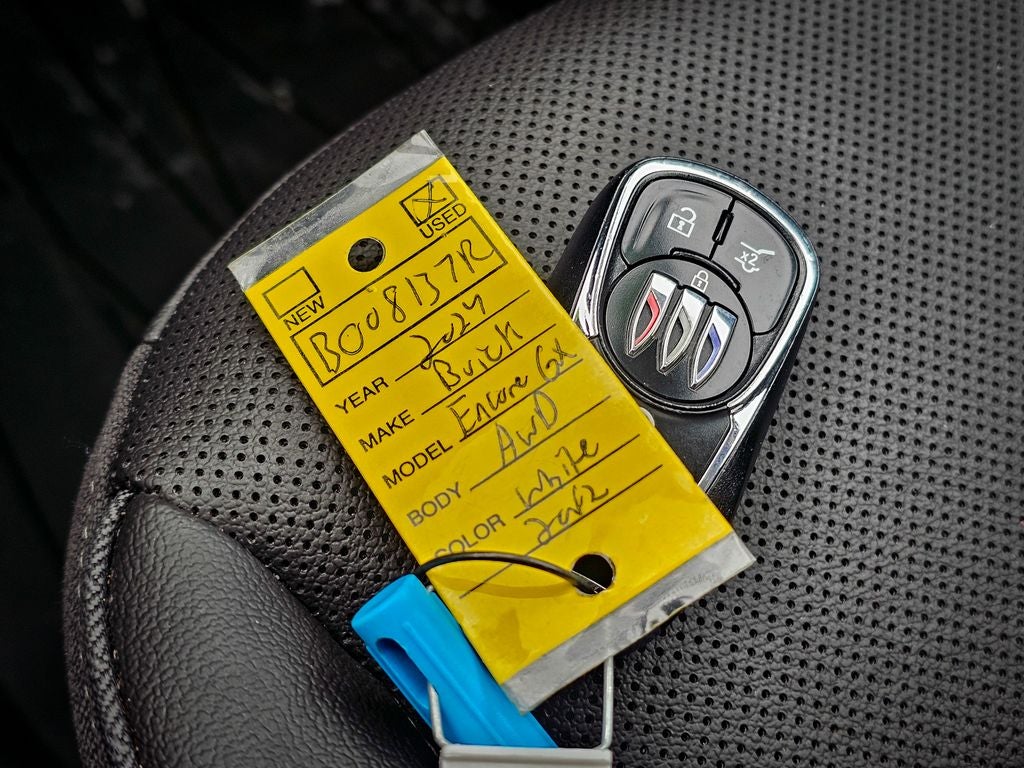 USED
NEW
B008137R
YEAR 2024
MAKE Buick
MODEL Encore GX
BODY AWD
COLOR White
x2